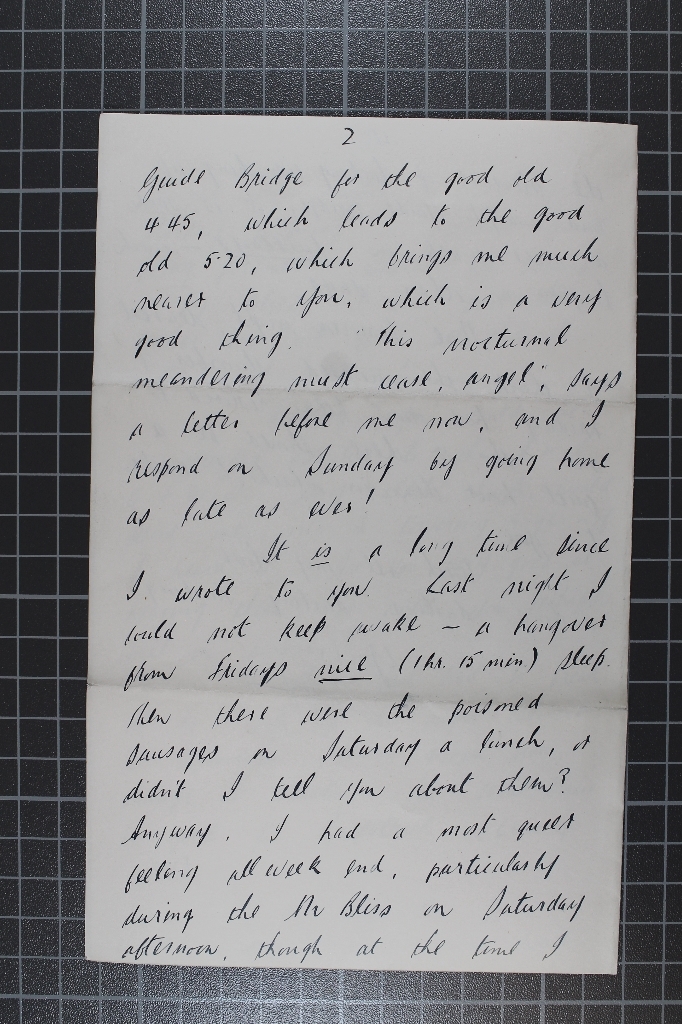 2
Guide Bridge for the good old
4 45, which leads to the good
old 5.20, which brings me much
nearer to you, which is a very
good thing. "This nocturnal
meandering must cease, angel", says
a letter before me now, and I
respond on Sunday by going home
as late as ever!
It is a long time since
I wrote to you. Last night I
could not keep awake - a hangover
from Fridays nice (1 hr. 15 min) sleep.
Then there were the poisoned
sausages on Saturday a lunch, or
didn't I tell you about them?
Anyway, I had a most queer
feeling all week end, particularly
during the Bliss on Saturday
afternoon, though at the time I